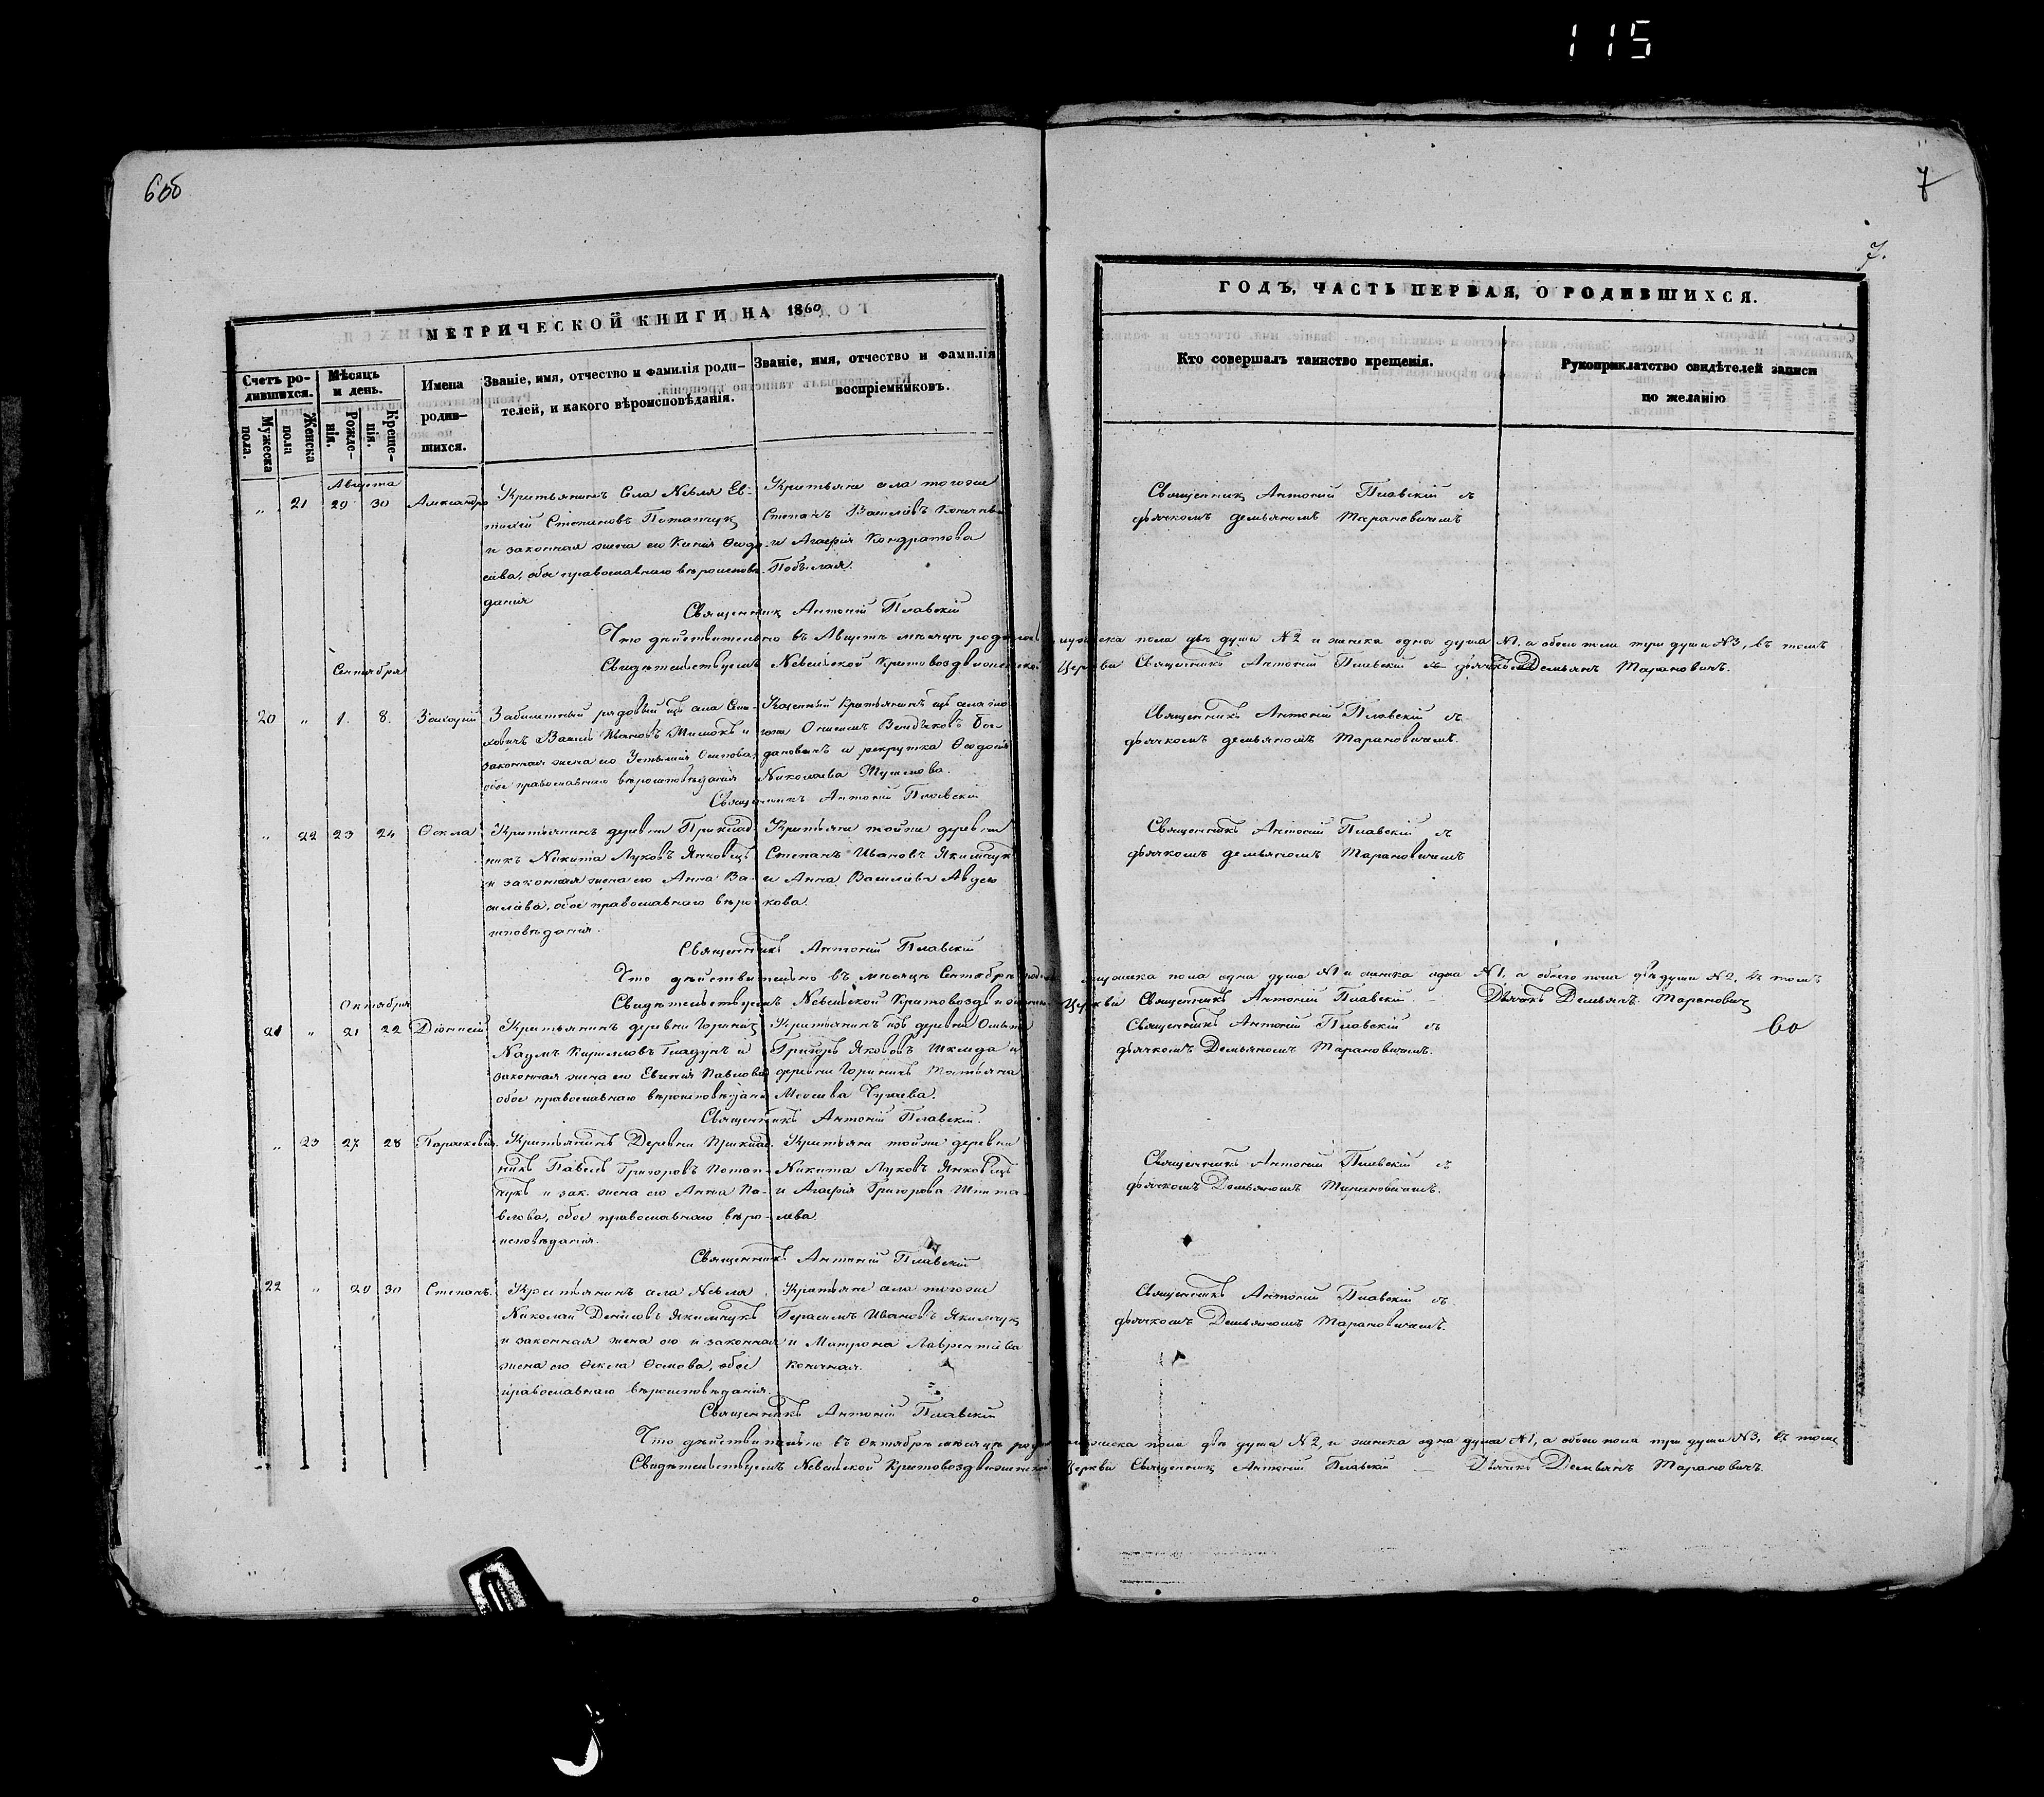 115
6об
7
7.
МЕТРИЧЕСКОЙ КНИГИ НА 1860
ГОДЪ, ЧАСТЬ ПЕРВАЯ, О РОДИВШИХСЯ.
Счетъ ро-
дившихся.
Мужеска
пола.
Женска
пола
Мѣсяцъ
и день.
Рожде-
нія.
Креще-
нія.
Имена
родив-
шихся.
Званіе, имя, отчество и фамилія роди-
телей, и какого вѣроисповѣданія.
Званіе, имя, отчество и фамилія
воспріемниковъ.
Кто совершалъ таинство крещенія.
Рукоприклатство свидѣтелей записи
по желанію
Августа
„ 21 29 30 Александра
Крестьянинъ Села Невля Ев-
Степановъ Потапчукъ
и законная жена его Ѳеодо-
сіева, обое православнаго вѣроисповѣ-
данія
Крестьяне села тогоже
Степанъ Василевъ
и Агафія Кондратова
Священникъ Антоній Плавскій съ
дьячкомъ демьяномъ Тарановичемъ
Священникъ Антоній Плавскій
Что дѣйствительно въ Августѣ мѣсяцѣ родилось мужеска пола двѣ души №2 и женска одна душа №1, а обоего пола три души №3, въ томъ
Свидѣтельствуемъ Невельской Крестовоздвиженской Церкви Священникъ Антоній Плавскій дьячокъ Демьянъ Тарановичъ.
Сентября
20 „ 1. 8. Захарій
Забилетный рядовый изъ села
Василь Ивановъ и
законная жена его Устинія Осипова,
обое православнаго вѣроисповѣданія
Крестьянинъ изъ села то
гоже Онисимъ Бог-
дановичъ и рекрутка Ѳеодосія
Николаева
Священникъ Антоній Плавскій съ
дьячкомъ демьяномъ Тарановичемъ.
Священникъ Антоній Плавскій
„ 22 23 24 Ѳекла
Крестьянинъ деревни Приклад-
никъ Никита Луковъ Янковецъ
и законная жена его Анна Ва-
силева, обое православнаго вѣро-
исповѣданія.
Крестьяне тойже деревни
Степанъ Ивановъ Якимчукъ
и Анна Василева Авдею
кова.
Священникъ Антоній Плавскій съ
дьячкомъ демьяномъ Тарановичемъ
Священникъ Антоній Плавскій
Что дѣйствительно въ мѣсяцѣ Сентябрѣ мужеска пола одна душа №1 и женска одна №1, а обоего пола двѣ души №2, въ томъ
Свидѣтельствуемъ Невельской Крестовоздвиженской Церкви Священникъ Антоній Плавскій — Дьячокъ Демьянъ Тарановичъ
Октября
21 „ 21 22
Крестьянинъ деревни Гориничъ
Наумъ Кирилловъ Гладунъ и
законная жена его Евгенія Павлова
обое православнаго вѣроисповѣданія
Крестьянинъ изъ деревни
Григорь Яковъ Шкляда и
деревни Гориничъ Татьяна
Моисѣева
Священникъ Антоній Плавскій съ
дьячкомъ Демьяномъ Тарановичемъ.
Священникъ Антоній Плавскій.
„ 23 27 28 Параскевія.
Крестьянинъ Деревни Приклад-
никъ Павелъ Григоровъ Потап-
чукъ и зак. жена его Анна Па-
влова, обое православнаго вѣро-
исповѣданія.
Крестьяне тойже деревни
Никита Луковъ Янковецъ
и Агафія Григорова
Священникъ Антоній Плавскій съ
дьячкомъ Демьяномъ Тарановичемъ.
Священникъ Антоній Плавскій
22 „ 30 Степанъ.
Крестьянинъ села Невля
Николай Денисовъ Якимчукъ
и законная жена его и законная
жена его Ѳекла Осипова, обое
православнаго вѣроисповѣданія.
Крестьяне села тогоже
Герасимъ Ивановъ Якимчукъ
и Матрона Лаврентіева
Священникъ Антоній Плавскій съ
дьячкомъ Демьяномъ Тарановичемъ.
Священникъ Антоній Плавскій
Что дѣйствительно въ Октябрѣ мѣсяцѣ мужеска пола двѣ души №2, и женска одна душа №1, а обоего пола три души №3, въ томъ
Свидѣтельствуемъ Невельской Крестовоздвиженской Церкви Священникъ Антоній Плавскій — Дьячокъ Демьянъ Тарановичъ.